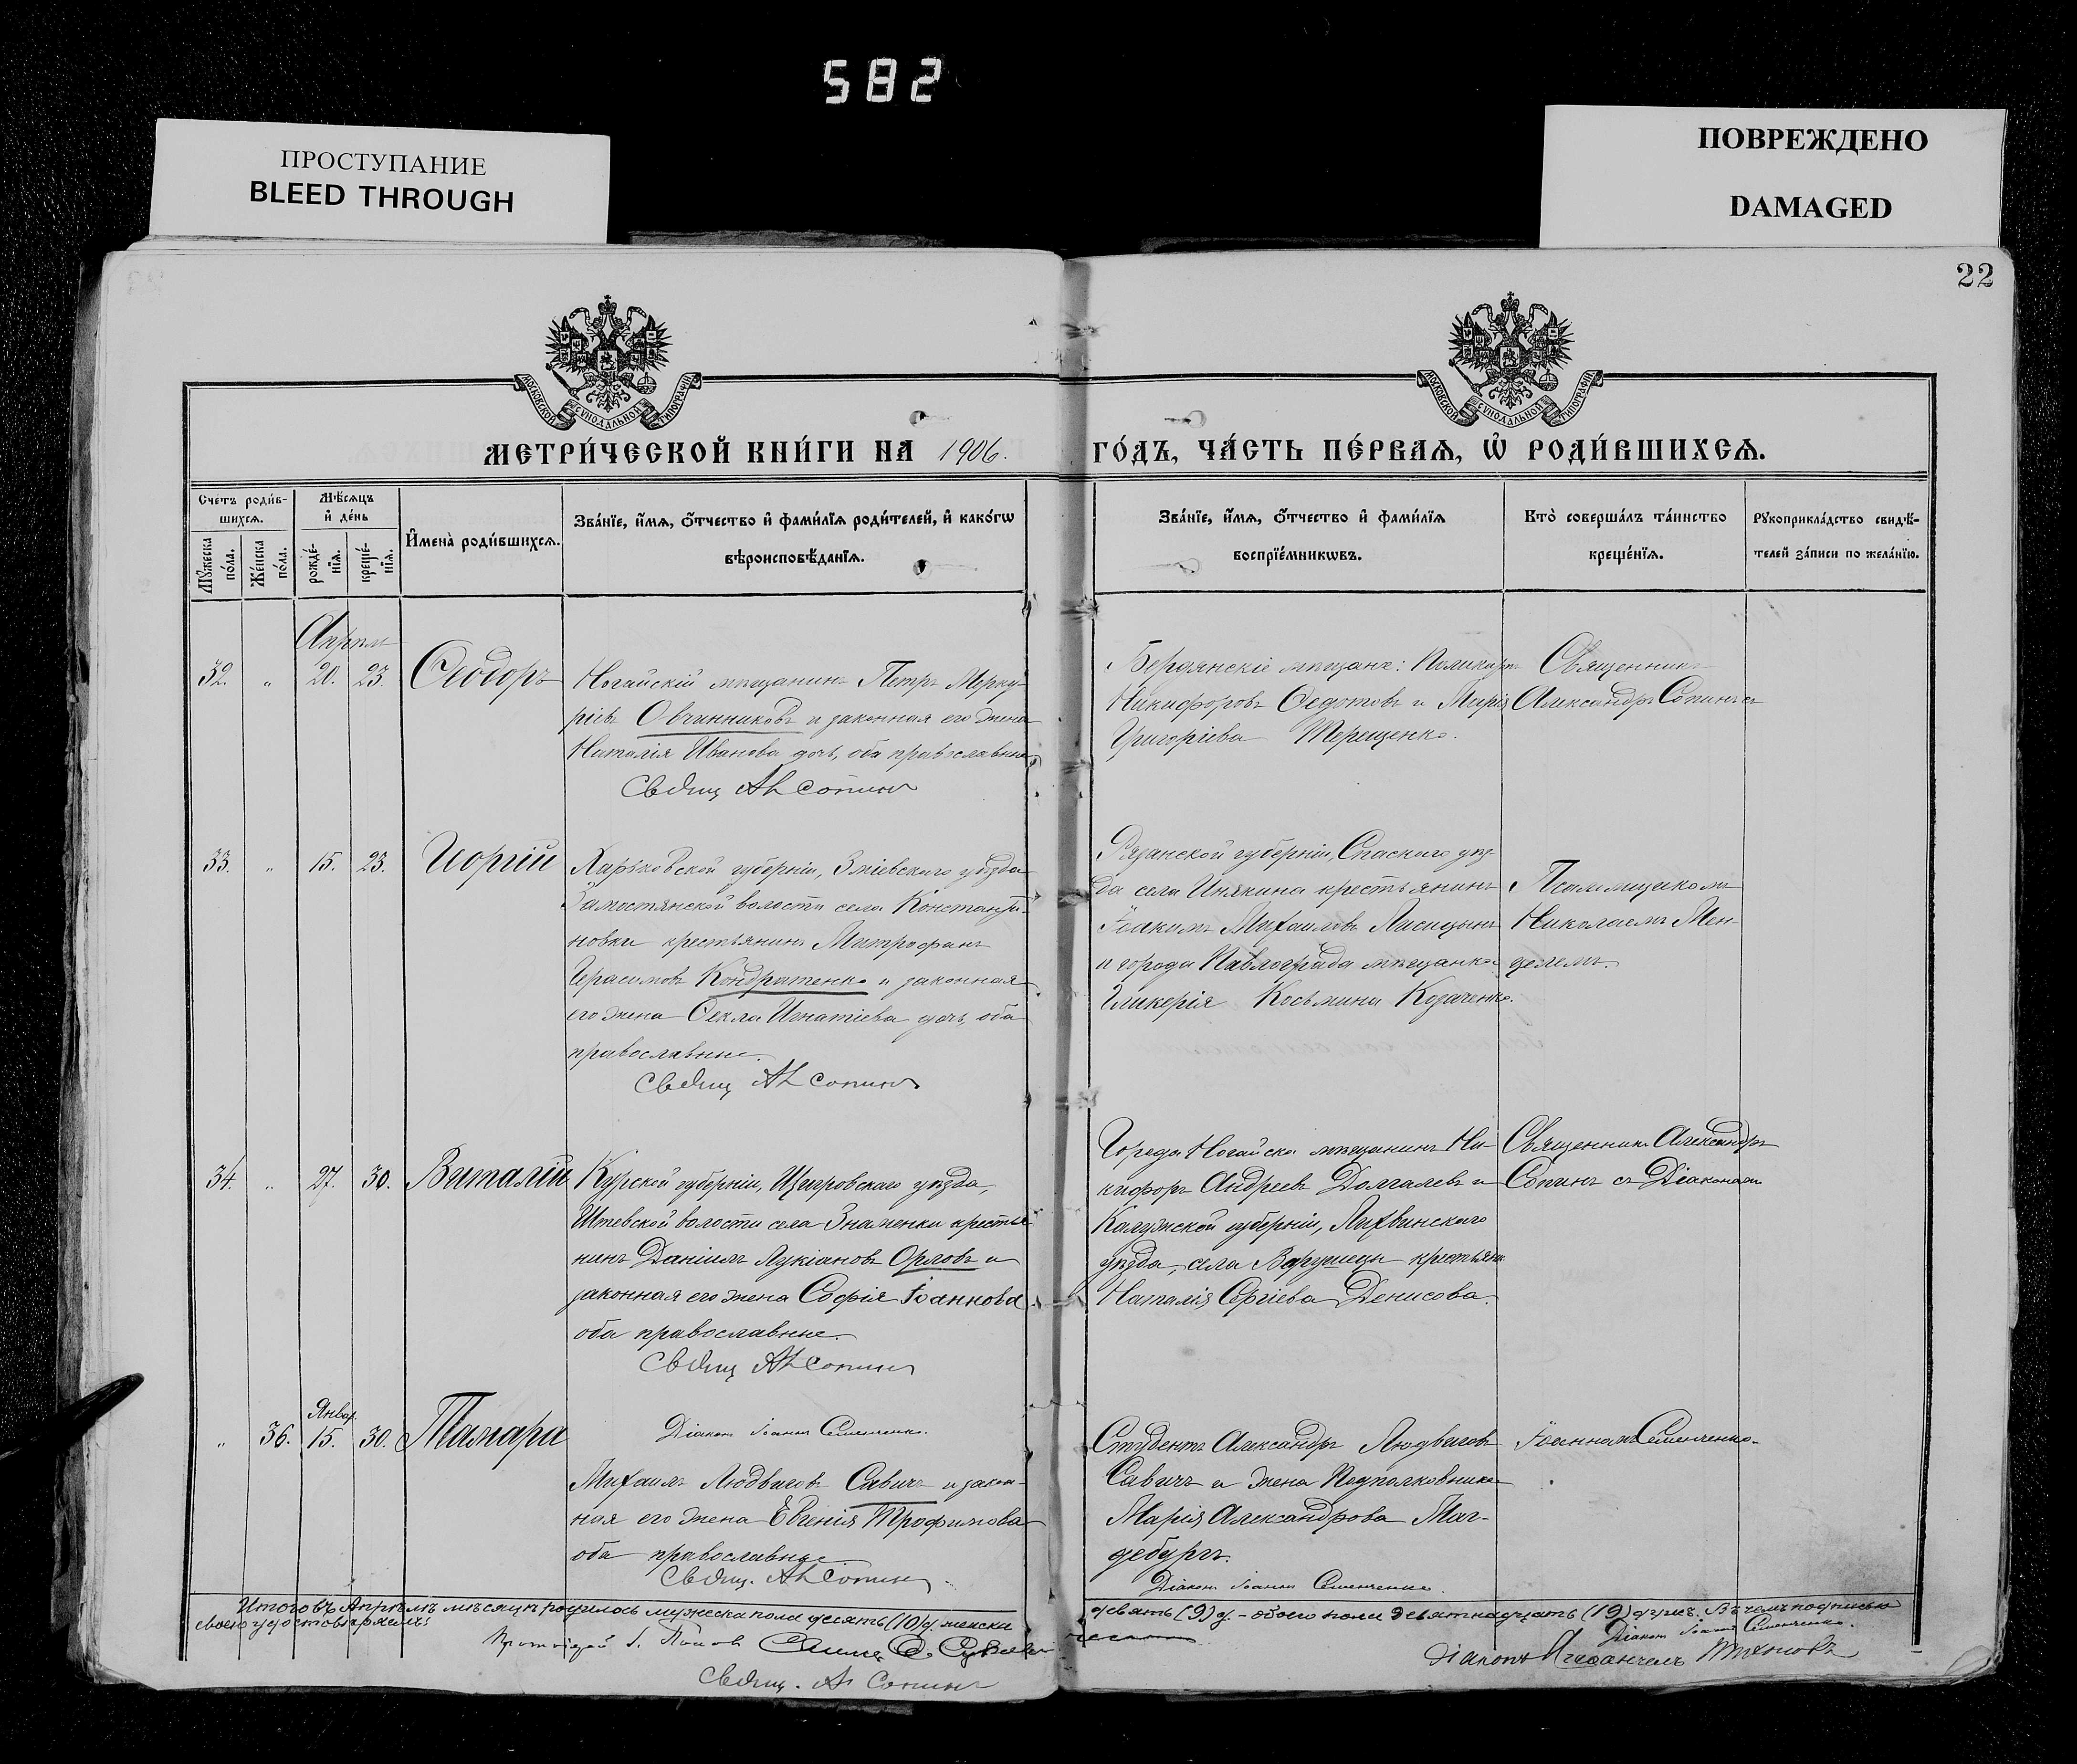 582
ПРОСТУПАНИЕ
BLEED THROUGH
ПОВРЕЖДЕНО
DAMAGED
22
МОСКОВСКОЙ СѴНОДАЛЬНОЙ ТИПОГРАФІИ
МОСКОВСКОЙ СѴНОДАЛЬНОЙ ТИПОГРАФІИ
МЕТРИ́ЧЕСКОЙ КНИ́ГИ НА 1906. ГО́ДЪ, ЧА́СТЬ ПЕ́РВАѦ, Ѡ҆ РОДИ́ВШИХСѦ.
Сче́тъ роди́в-
шихсѧ.
Мꙋ́жеска по́ла.
Же́нска по́ла.
Мѣ́сѧцъ
и҆ де́нь
рожде́-
нїѧ.
креще́-
нїѧ.
И҆мена̀ роди́вшихсѧ.
Зва́нїе, и҆́мѧ, ѻ҆́тчество и҆ фами́лїѧ роди́телей, и҆ како́гѡ
вѣроисповѣ́данїѧ.
Зва́нїе, и҆́мѧ, ѻ҆́тчество и҆ фами́лїѧ
воспрїе́мникѡвъ.
Кто̀ соверша́лъ та́инство
креще́нїѧ.
Рꙋкоприкла́дство свидѣ́-
телей за́писи по жела́нїю.
Апрѣль
32. „ 20. 23. Ѳеодоръ
Ногайскій мѣщанинъ Петръ Мерку-
ріевъ Овчинниковъ и законная его жена
Наталія Иванова дочь, оба православные
Свящ Ал Сопинъ
Бердянскіе мѣщане: Поликарпъ
Никифоровъ Ѳедотовъ и Марія
Григоріева Терещенко.
Священникъ
Александръ Сопинъ съ
33. „ 15. 23. Георгій
Харьковской губерніи, Зміевскаго уѣзда
Замостянской волости села Константи-
новки крестьянинъ Митрофанъ
Герасимовъ Кондратенко и законная
его жена Ѳекла Игнатіева дочь, оба
православные.
Свящ Ал Сопинъ
Рязанской губерніи, Спаскаго уѣз-
да села Инякина крестьянинъ
Іоакимъ Михаиловъ Лисицынъ
и города Павлограда мѣщанка
Гликерія Косьмина Козаченко.
Псаломщикомъ
Николаемъ Мен-
делемъ.
34. „ 27. 30. Виталій
Курской губерніи, Щигровскаго уѣзда,
волости села Знаменки крестья-
нинъ Даніилъ Лукіановъ Орловъ и
законная его жена Софія Іоаннова
оба православные.
Свящ Ал Сопинъ
Города Ногайска мѣщанинъ Ни-
кифоръ Андреевъ Долгалевъ и
Калужской губерніи, Лихвинскаго
уѣзда, села крестьянка
Наталія Сергіева Денисова.
Священникъ Александръ
Сопинъ съ Діакономъ
Январ.
„ 36. 15. 30. Тамара
Діаконъ Іоаннъ Семенченко.
Михаилъ Людвиговъ Савичъ и закон-
ная его жена Евгенія Трофимова
оба православные
Свящ. Ал Сопинъ
Студентъ Александръ Людвиговъ
Савичъ и жена Подполковника
Марія Александрова Маг-
дебургъ.
Діаконъ Іоаннъ Семенченко.
Іоанномъ Семенченко.
Итого въ Апрѣлѣ мѣсяцѣ родилось мужеска пола десять (10) д. женска
девять (9) д. – обоего пола девятнадцать (19) душъ. Въ чемъ подписью
своею удостовѣряемъ:
Протоіерей Г. Поповъ
Свящ. Ал Сопинъ
Діаконъ Іоаннъ Семенченко.
Діаконъ